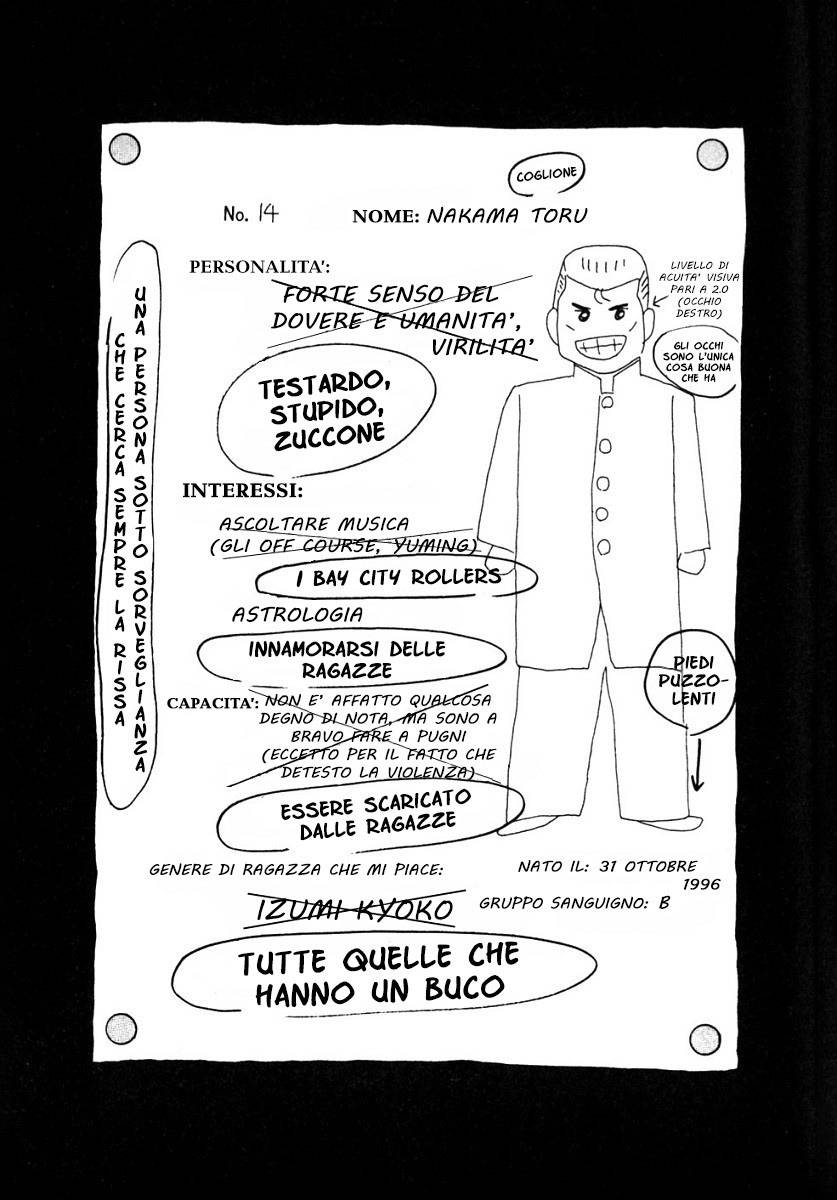 COGLIONE
No. 14
NOME: NAKAMA TORU
PERSONALITA':
FORTE SENSO DEL
DOVERE E UMANITA',
VIRILITA'
TESTARDO,
STUPIDO,
ZUCCONE
LIVELLO DI
ACUITA' VISIVA
PARI A 2.0
(OCCHIO
DESTRO)
GLI OCCHI
SONO L'UNICA
COSA BUONA
CHE HA
UNA PERSONA SOTTO SORVEGLIANZA
CHE CERCA SEMPRE LA RISSA
INTERESSI:
ASCOLTARE MUSICA
(GLI OFF COURSE, YUMING)
I BAY CITY ROLLERS
ASTROLOGIA
INNAMORARSI DELLE
RAGAZZE
PIEDI
PUZZO-
LENTI
CAPACITA': NON E' AFFATTO QUALCOSA
DEGNO DI NOTA, MA SONO A
BRAVO FARE A PUGNI
(ECCETTO PER IL FATTO CHE
DETESTO LA VIOLENZA)
ESSERE SCARICATO
DALLE RAGAZZE
GENERE DI RAGAZZA CHE MI PIACE:
IZUMI KYOKO
TUTTE QUELLE CHE
HANNO UN BUCO
NATO IL: 31 OTTOBRE
1996
GRUPPO SANGUIGNO: B